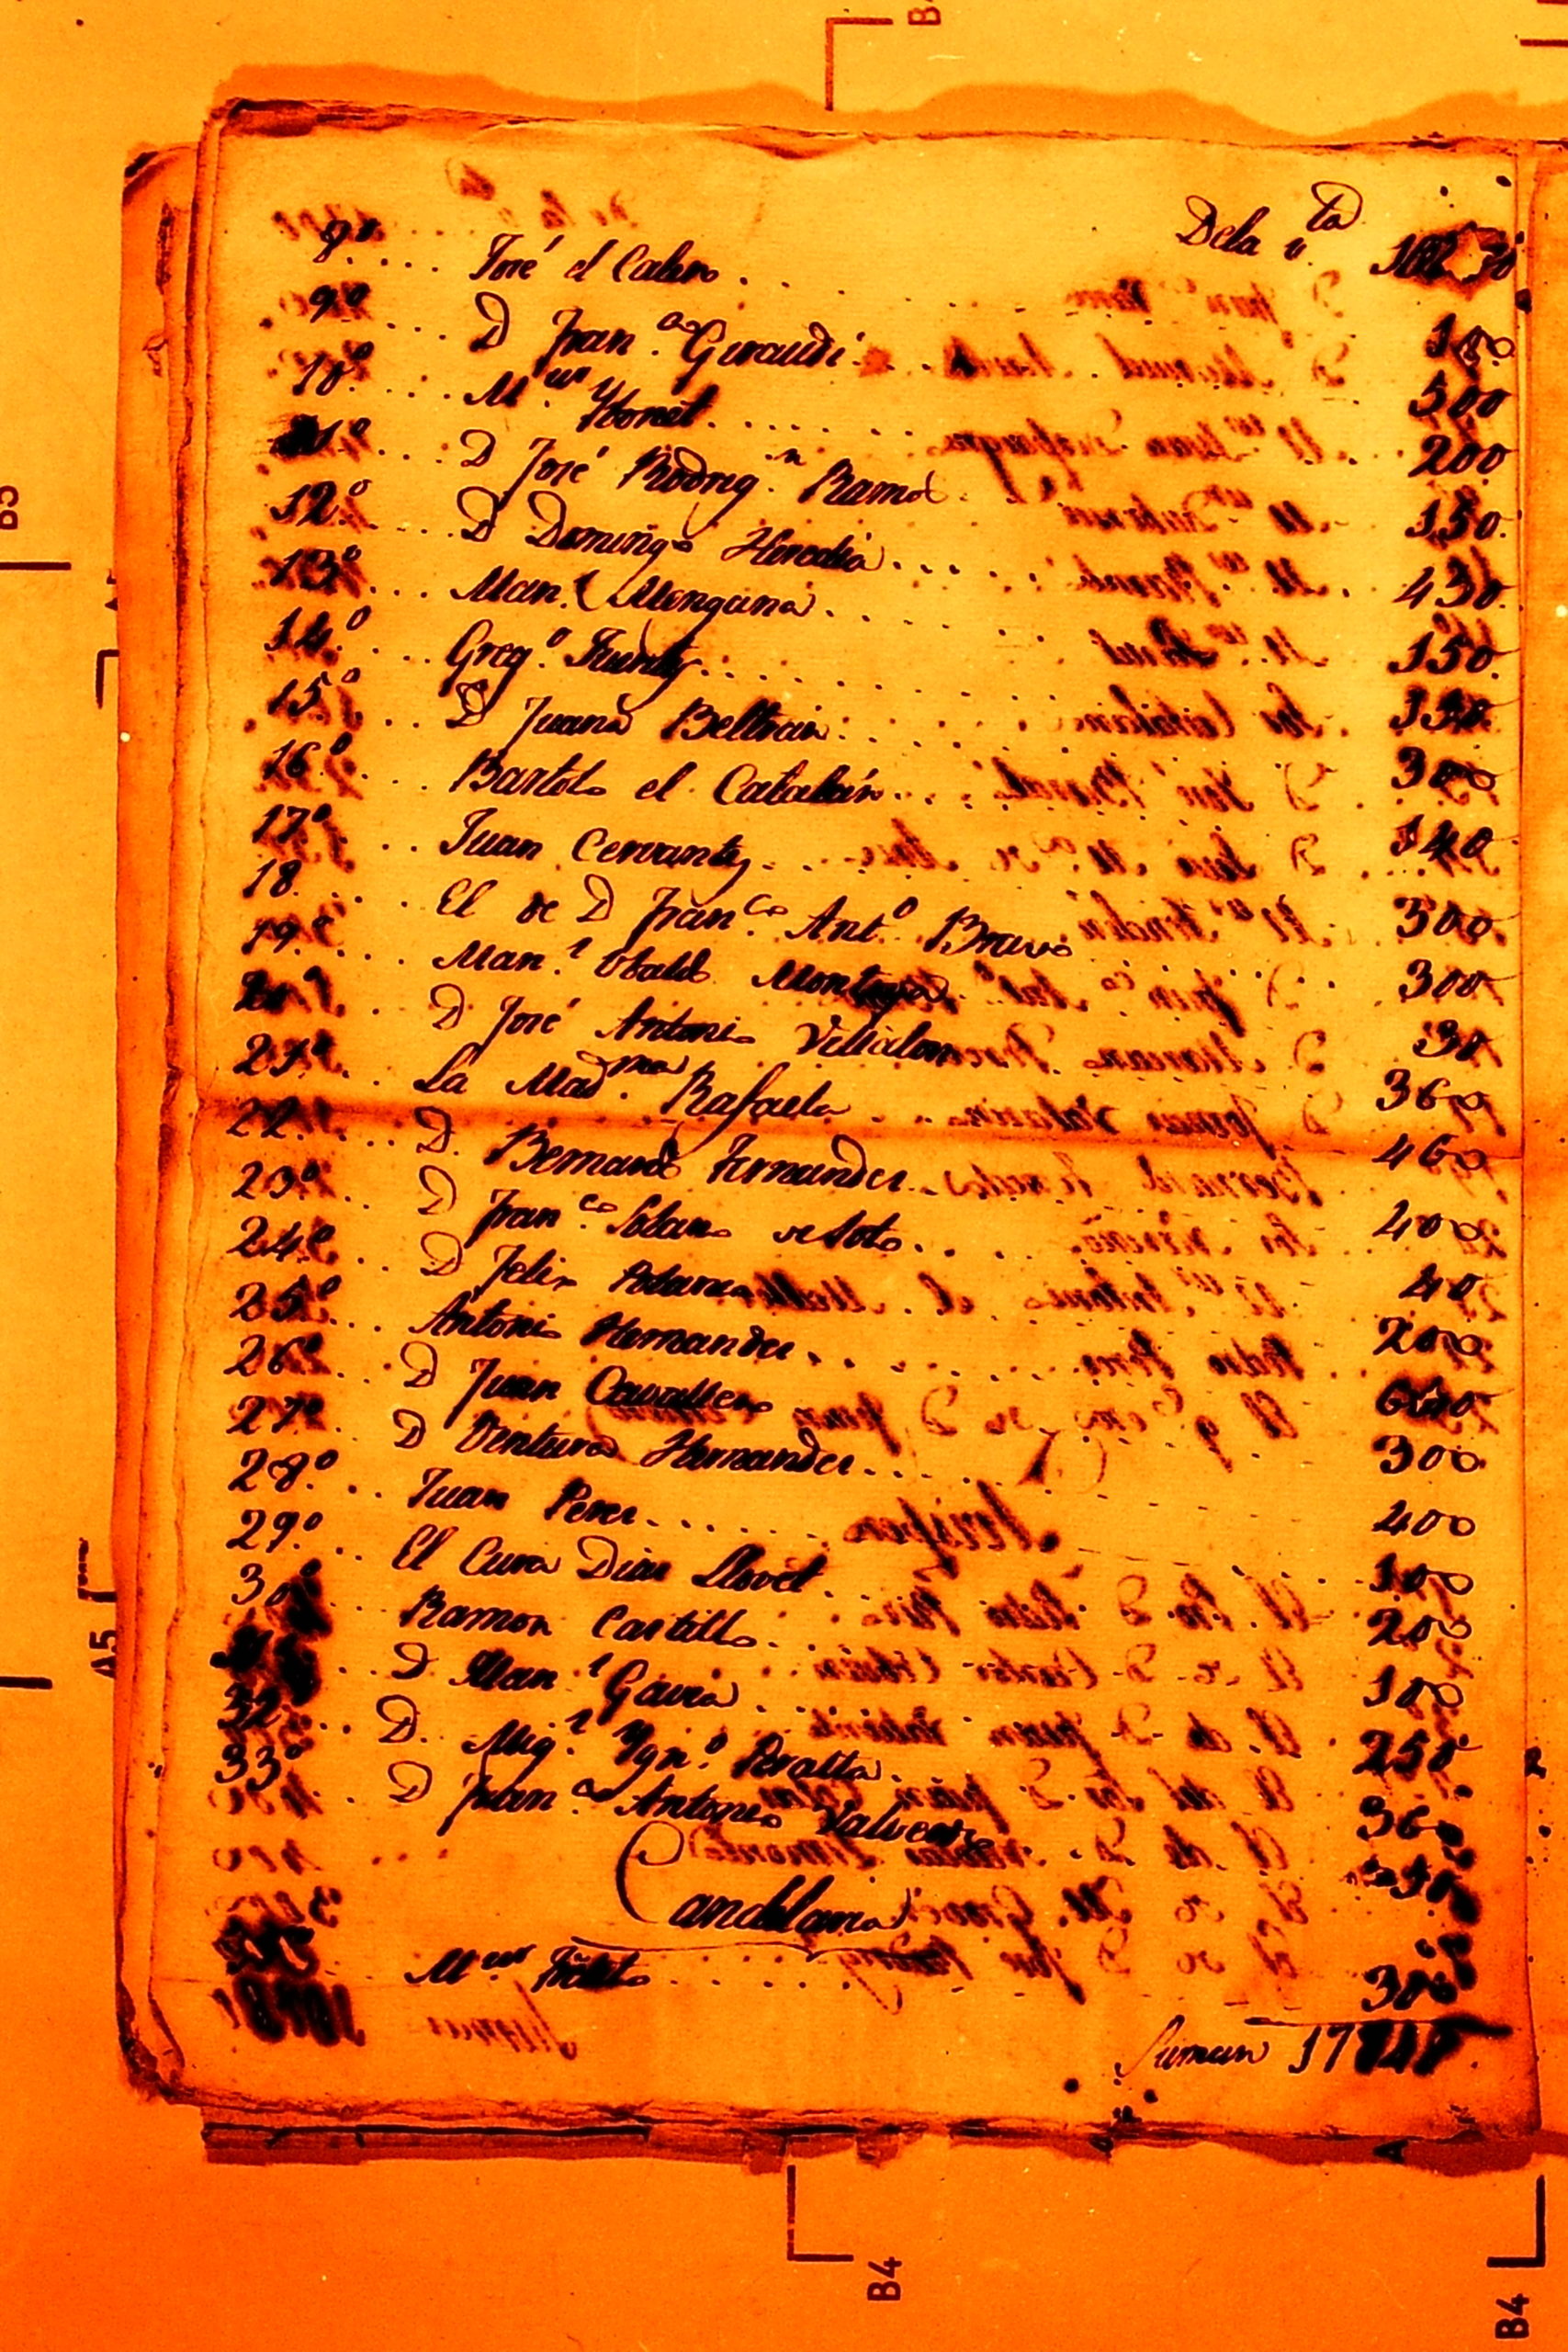 B4
De la v.ta
8º.... José el Calero.... 100
9º.... D Fran.co Giraudi.... 500
10º.... M.eur Ybonet.... 200
D José Rodrig.n Ramos.... 150
12º.... D Domingo Heredia.... 430
13º.... Man.l Mengana.... 150
14º.... Greg.º Fuentes....
15º.... D Juana Beltran.... 300
16º.... Bartolo el Catalán.... 140
17º.... Juan Cervantes.... 500
18.... El de D Fran.co Ant.º Bravo.... 300
19º.... Man.l Ubaldo Montoya.... 30
20.... D José Antonio Villalon.... 360
21º.... La Mad.ma Rafaela.... 460
22.... D. Bernardo Fernandez.... 400
23º.... D Fran.co Solano de Soto.... 40
24º.... D Felix Polanco.... 200
25º.... Antonio Hernandez.... 600
26º.... D Juan Cavallero.... 300
27º.... D Ventura Hernandez.... 400
28º.... Juan Perez.... 100
29º.... El Cura Dias Llovet.... 200
30º.... Ramon Castillo.... 100
D Man.l Gavia.... 250
32.... D. Mig.l Ygn.º Peralta.... 360
33º.... D Fran.co Antonio Valverde....
Candelaria
M.eur.... 300
Suman
B5
A5
B4
B4